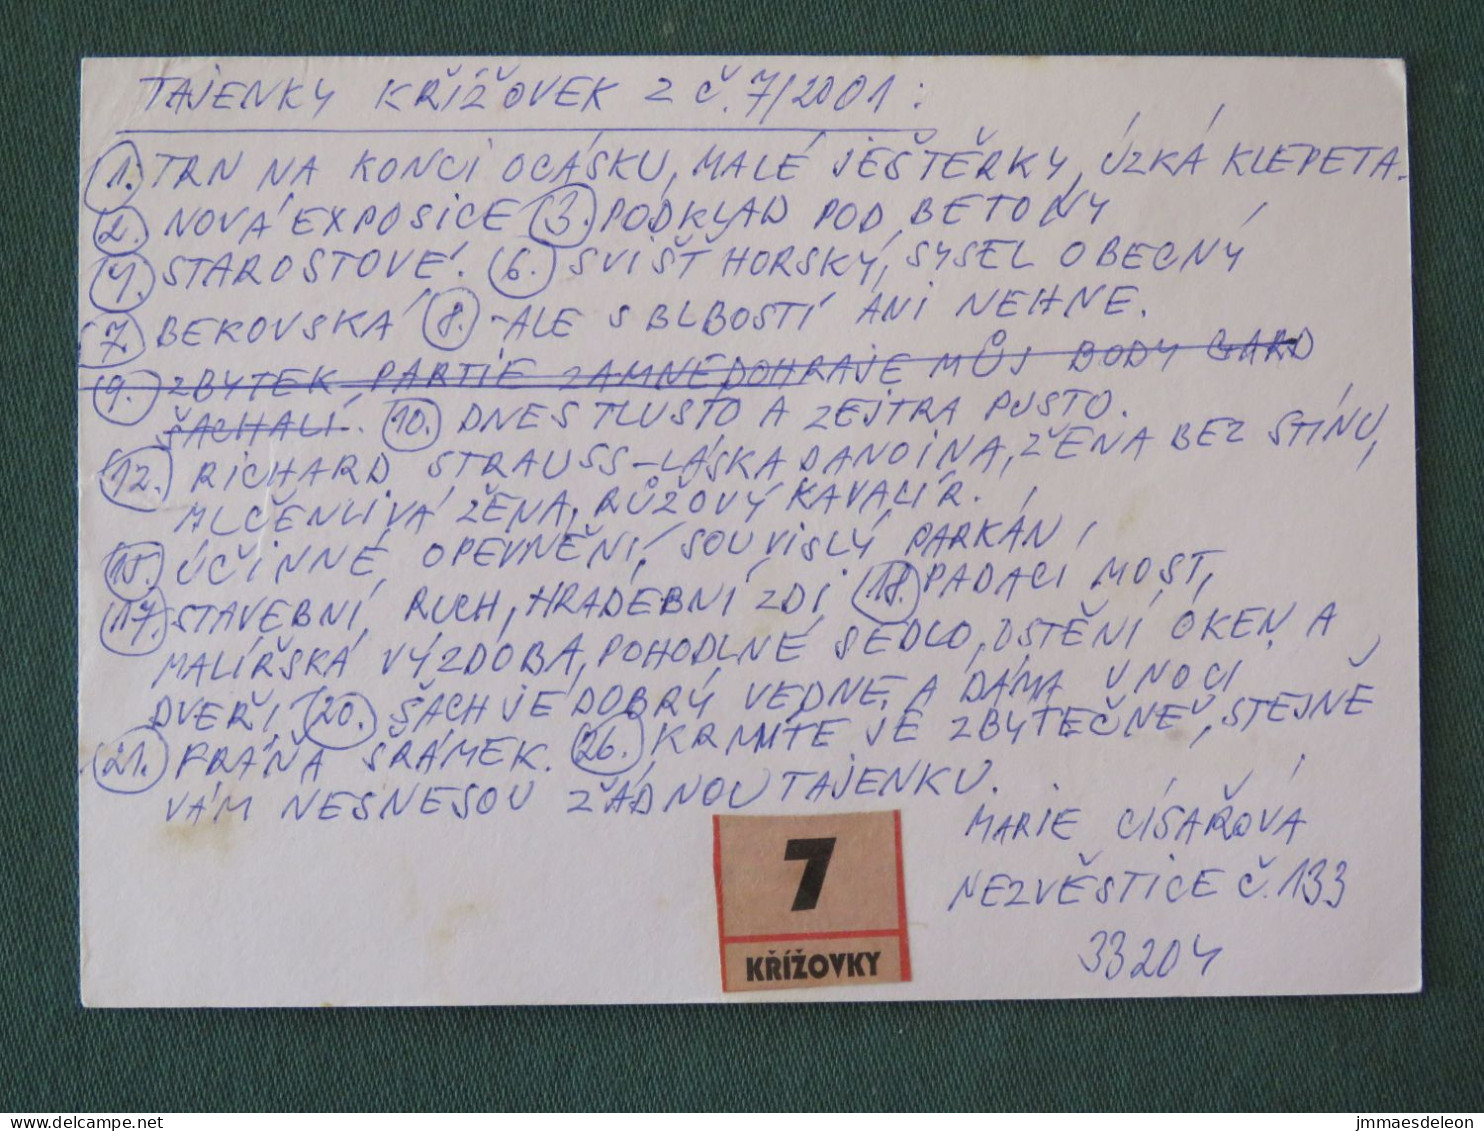 TAJENKY KŘÍŽOVEK Z Č. 7/2001:
1. TRN NA KONCI OCÁSKU, MALÉ JEŠTĚRKY, ÚZKÁ KLEPETA.
2. NOVÁ EXPOSICE 3. PODKLAD POD BETONY
4. STAROSTOVÉ. 6. SVIŠŤ HORSKÝ, SYSEL OBECNÝ
7. BEROVSKÁ 8. -ALE S BLBOSTÍ ANI NEHNE.
9. ZBYTEK PARTIE ZAMNEDOHRAJE MŮJ BODY GARD
ŠACHALI. 10. DNES TLUSTO A ZEJTRA PUSTO.
12. RICHARD STRAUSS-LÁSKA DANOINA, ŽENA BEZ STÍNU,
MLČENLIVÁ ŽENA, RŮŽOVÝ KAVALÍR.
15. ÚČINNÉ OPEVNĚNÍ, SOUVISLÝ PARKÁN,
17. STAVEBNÍ RUCH, HRADEBNÍ ZDI 18. PADACÍ MOST,
MALÍŘSKÁ VÝZDOBA, POHODLNÉ SEDLO, OSTĚNÍ OKEN A
DVEŘÍ, 20. ŠACH JE DOBRÝ VE DNE, A DÁMA V NOCI
21. FRÁŇA ŠRÁMEK. 26. KRMÍTE JE ZBYTEČNĚ, STEJNĚ
VÁM NESNESOU ŽÁDNOU TAJENKU.
MARIE CÍSAŘOVÁ
NEZVĚSTICE Č. 133
33204
7
KŘÍŽOVKY
https://www.delcampe.net
jmmaesdeleon